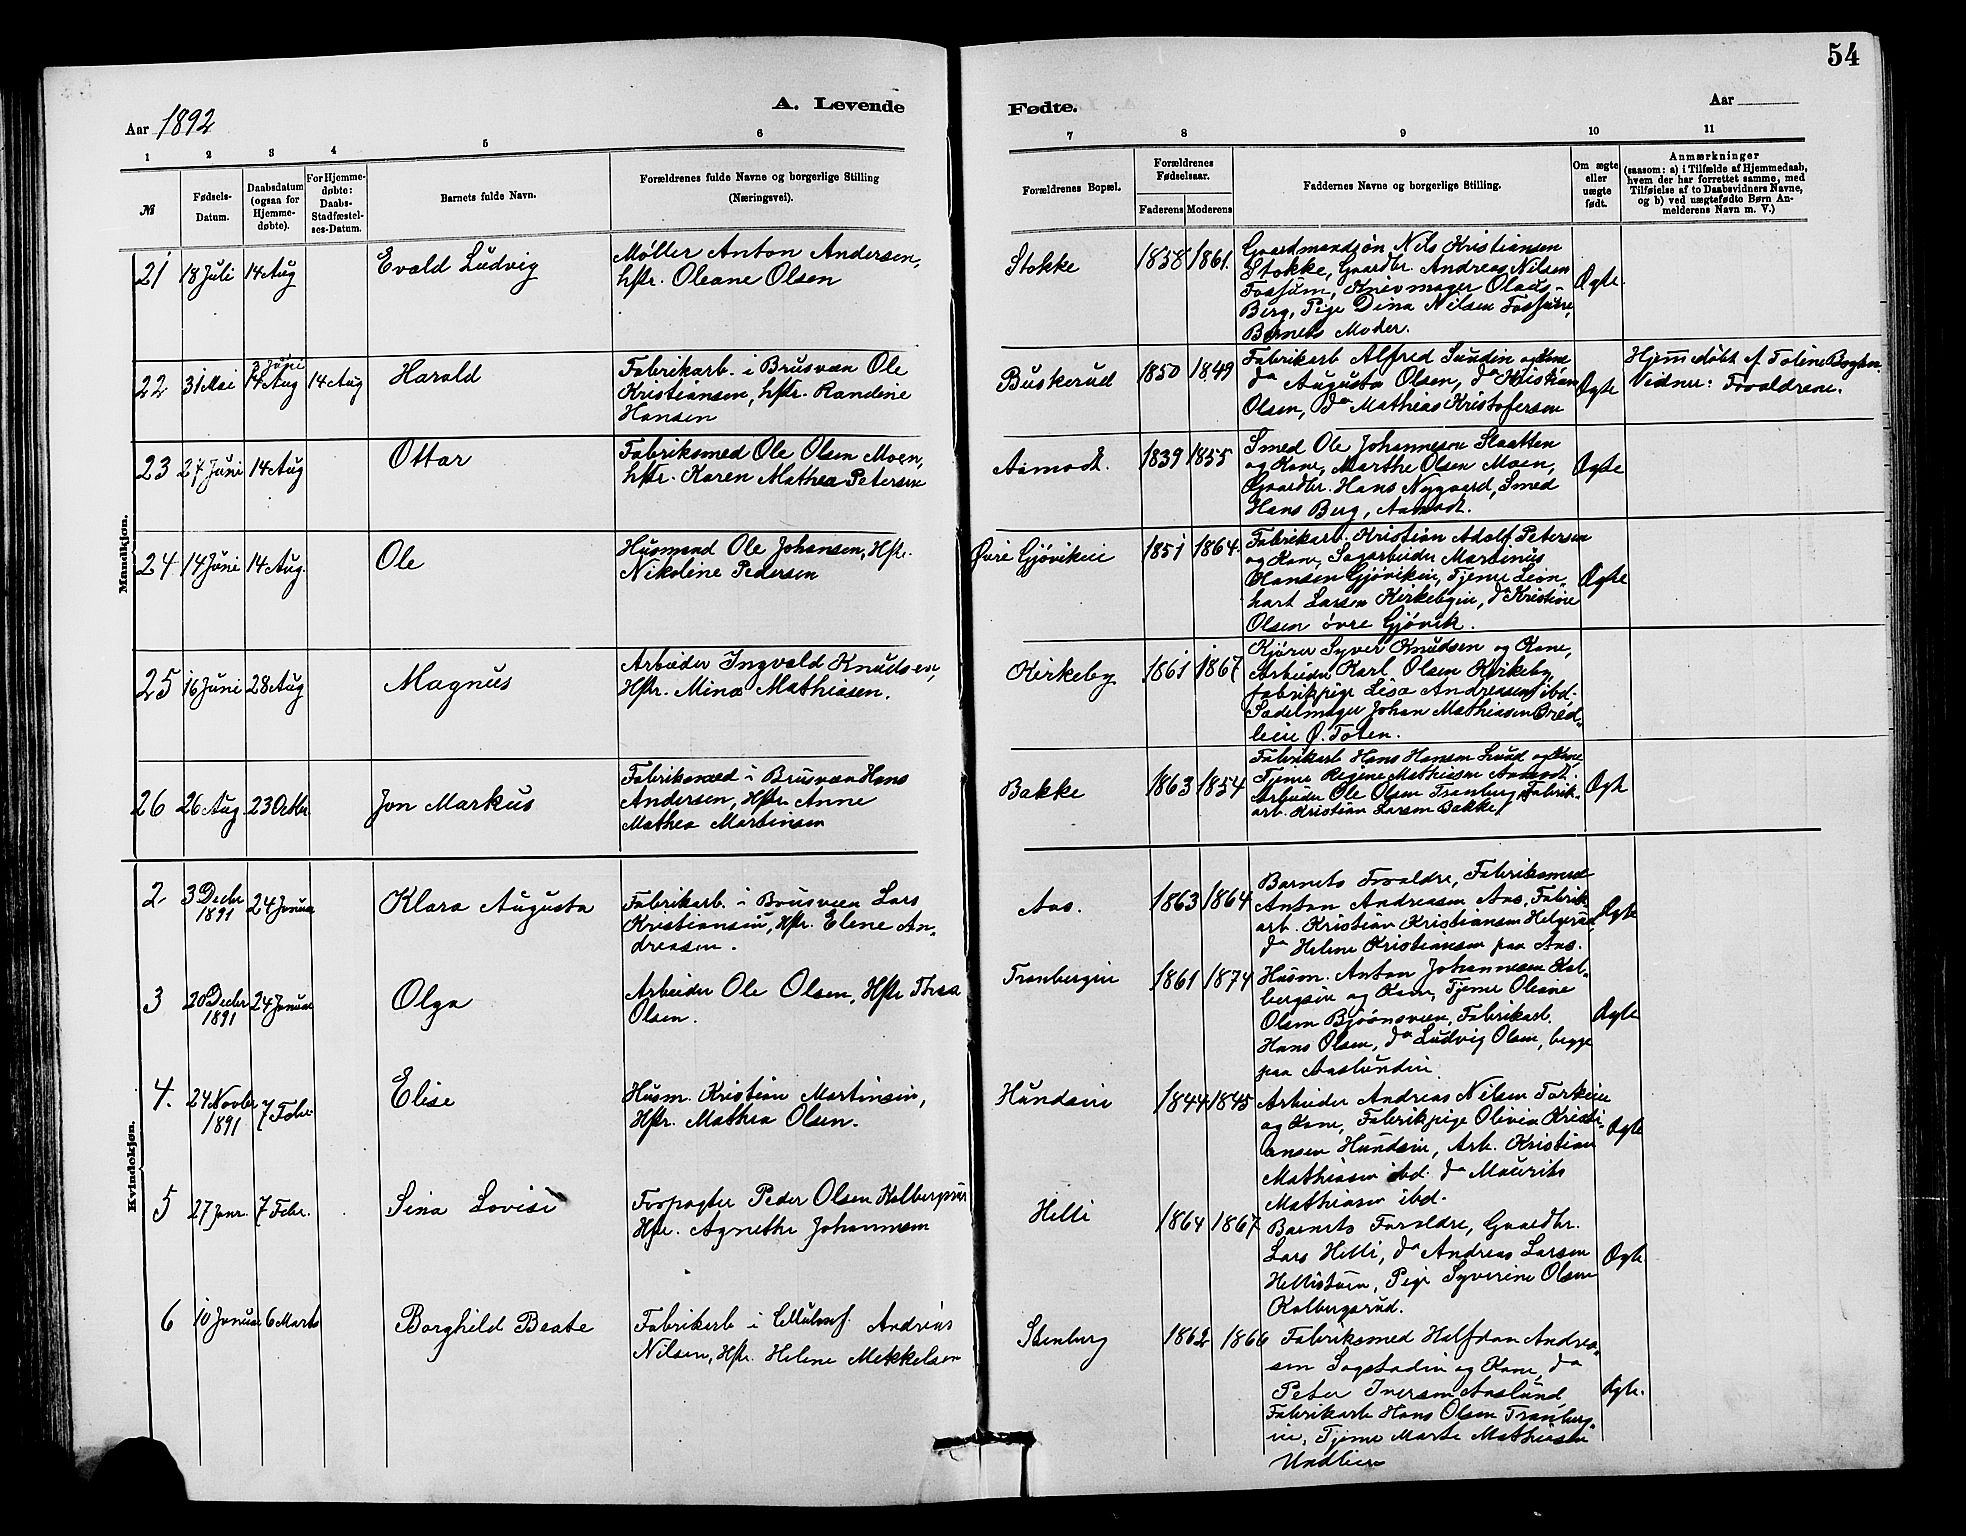 54
Aar 1892
A. Levende
Fødte.
Aar
1
2
3
4
5
6
7
8
9
10
11
№
Fødsels-
Datum.
Daabsdatum
(ogsaa for
Hjemme-
døbte).
For Hjemme-
døbte:
Daabs-
Stadfæstel-
ses-Datum.
Barnets fulde Navn.
Forældrenes fulde Navne og borgerlige Stilling
(Næringsvei).
Forældrenes Bopæl.
Forældrenes
Fødselsaar.
Faderens
Moderens
Faddernes Navne og borgerlige Stilling.
Om ægte
eller
uægte
født.
Anmærkninger
(saasom: a) i Tilfælde af Hjemmedaab,
hvem der har forrettet samme, med
Tilføielse af to Daabsvidners Navne,
og b) ved uægtefødte Børn An-
melderens Navn m. V.)
Mandkjøn.
21 18 Juli 14 Aug
Evald Ludvig
Møller Anton Andersen,
hstr. Oleane Olsen
Stokke
1838 1861.
Gaardmandsøn Nils Kristiansen
Stokke, Gaardbr. Andreas Nilsen
Fossum, Knivmager Olaus
Berg, Pige Dina Nilsen Fossum,
Barnets Moder.
Ægte.
22 31 Mai 2 Juni
14 Aug 14 Aug
Harald
Fabrikarb. i Brusveen Ole
Kristiansen, hstr. Randine
Hansen
Buskerud
1850 1849
Fabrikarb Alfred Sundin og Kone
do Augusta Olsen, do Kristian
Olsen, do Mathias Kristofersen
Ægte
Hjemdøbt af Toline Boghen.
Vidner: Forældrene.
23 27 Juni 14 Aug
Ottar
Fabriksmed Ole Olsen Moen,
hstr. Karen Mathea Petersen
Aamodt.
1839 1855
Smed Ole Johannesen Slaatten
og Kone, Marthe Olsen Moen,
Gaardbr. Hans Nygaard, Smed
Hans Berg, Aamodt.
Ægte
24 14 Juni 14 Aug.
Ole
Husmand Ole Johansen, Hstr.
Nikoline Pedersen
Øvre Gjøvikeie
1851 1864.
Fabrikarb. Kristian Adolf Petersen
og Kone, Sagarbeider Martinus
Hansen Gjøvikeie, Tjener Leon-
hart Larsen Kirkebyeie, do Kristine
Olsen øvre Gjøvik.
Ægte
25 16 Juni 28 Aug
Magnus
Arbeider Ingvald Knudsen,
Hstr. Mina Mathiasen.
Kirkeby
1861 1867
Kjører Syver Knudsen og Kone,
Arbeider Karl Olsen Kirkeby,
Fabrikpige Lisa Andreasen ibd.
Sadelmager Johan Mathiasen Bred-
leie Ø. Toten.
26 26 Aug. 23 Octbr
Jon Markus
Fabriksmed i Brusveen Hans
Andersen, Hstr. Anne
Mathea Martinsen
Bakke
1863 1854
Fabrikarb Hans Hansen Lund og Kone,
Tjener Regine Mathiasen Aamodt.
Arbeider Ole Olsen Tranberg, Fabrik-
arb. Kristian Larsen Bakke,
Ægte
Kvindekjøn.
2 3 Decbr
1891 24 Januar
Klara Augusta
Fabrikarb. i Brusveen Lars
Kristiansen, Hstr. Elene An-
dreasen.
Aas.
1863 1864
Barnets Forældre, Fabriksmed
Anton Andreasen Aas, Fabrik-
arb. Kristian Kristiansen Helgerud,
do Helene Kristiansen paa Aas.
Ægte
3 20 Decbr
1891 24 Januar
Olga
Arbeider Ole Olsen, Hstr Thea
Olsen.
Tranbergeie
1861 1874
Husm. Anton Johannesen Kol-
bergseie og Kone, Tjener Oleane
Olsen Bjørnsveen, Fabrikarb.
Hans Olsen, do Ludvig Olsen, begge
paa Aaslundeie.
Ægte
4. 24 Novbr
1891 7 Febr.
Elise
Husm. Kristian Martinsen,
Hstr. Mathea Olsen.
Hundseie
1844 1845
Arbeider Andreas Nilsen Torkeie
og Kone, Fabrikpige Olivia Kristi-
ansen Hundseie, Arb. Kristian
Mathiasen ibd. do Maurits
Mathiasen ibd.
Ægte
5 27 Janr. 7 Febr.
Sina Lovise
Forpagter Peder Olsen Kolbergsrud
Hstr. Agnethe Johannesen
Helli
1864 1867
Barnets Forældre, Gaardbr.
Lars Helli, do Andreas Larsen
Hellistuen, Pige Syverine Olsen
Kolbergsrud.
Ægte
6 10 Januar 6 Marts
Borghild Beate
Fabrikarb i Cellulosef. Andreas
Nilsen, Hstr. Helene Mekkelsen
Stenberg
1862 1866
Fabriksmed Halfdan Andrea-
sen Sogstadeie og Kone, do
Peter Iversen Aaslund,
Fabrikarb Hans Olsen Tranberg-
eie, Tjener Marte Mathiasen
Undlien
Ægte.